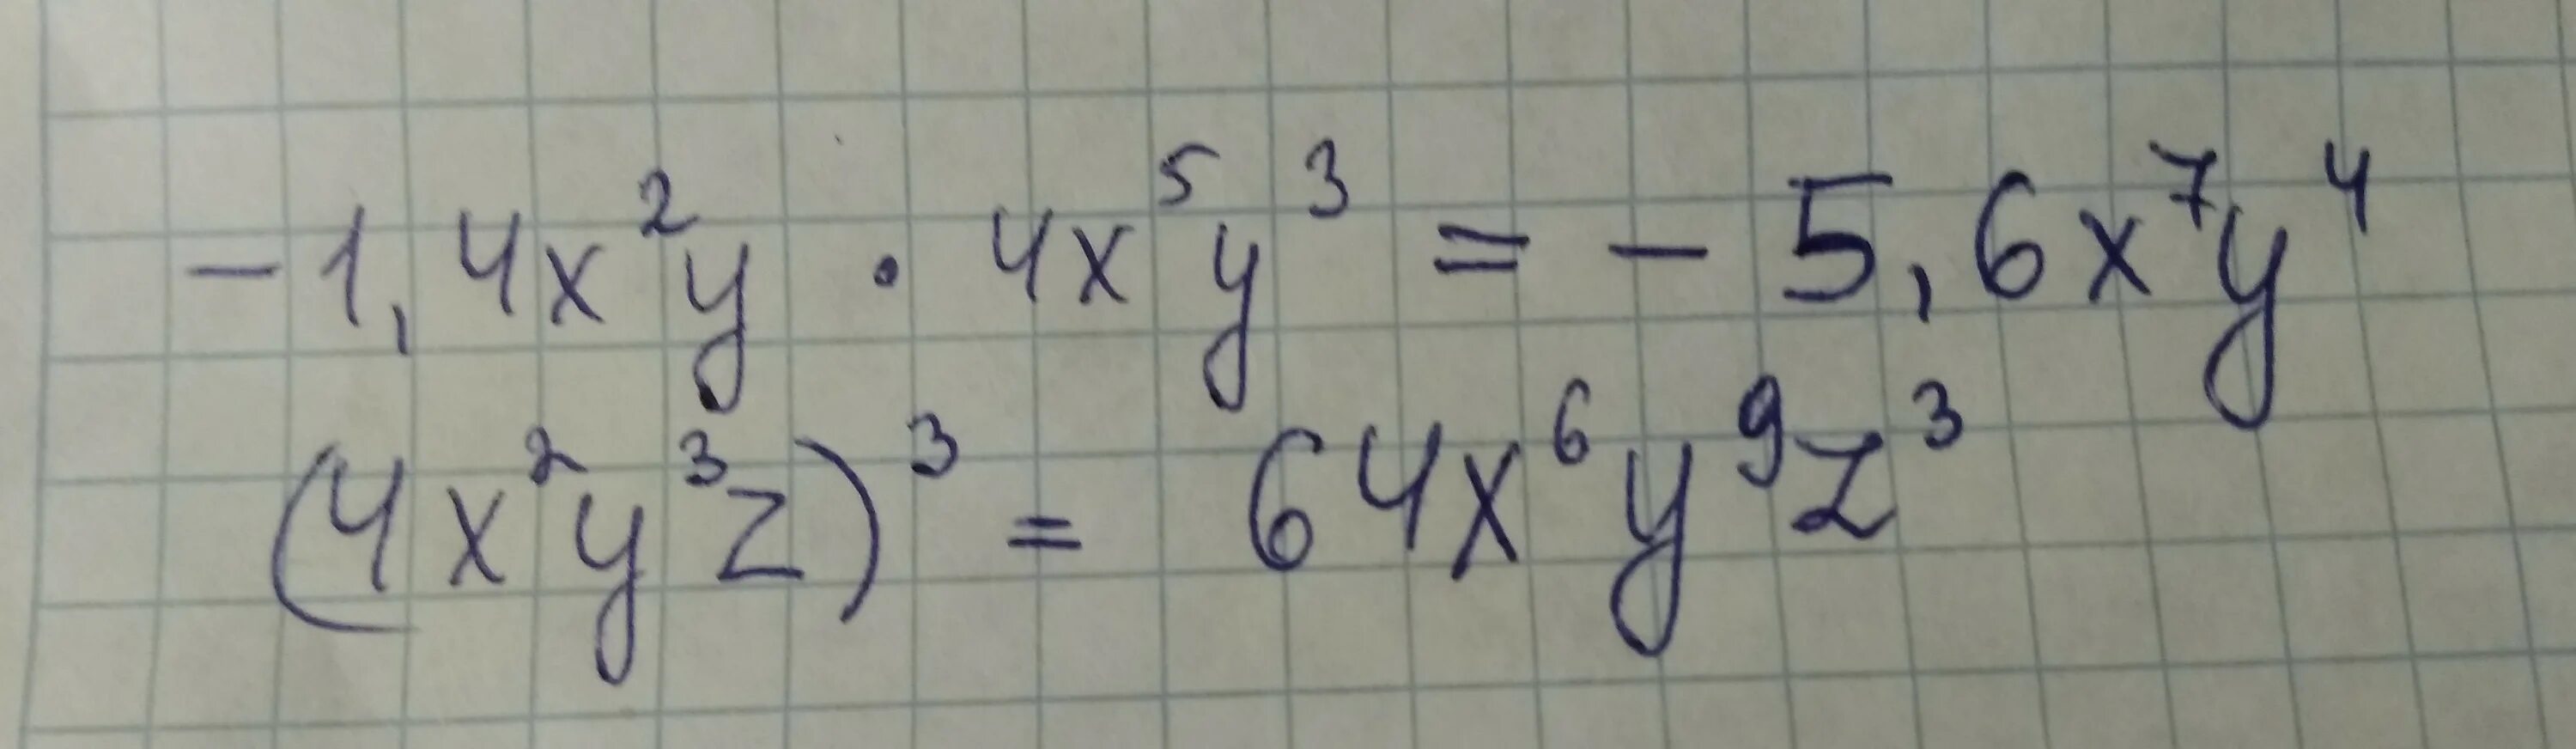 -1,4x²y · 4x⁵y³ = -5,6x⁷y⁴
(4x²y³z)³ = 64x⁶y⁹z³